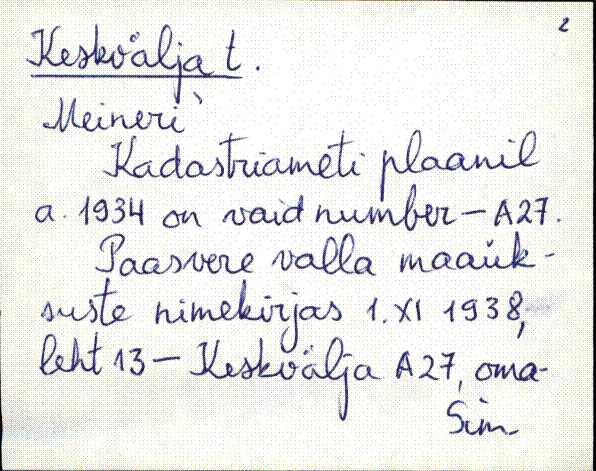 2
Keskvälja t.
Meineri
Kadastriameti plaanil
a. 1934 on vaid number – A27.
Paasvere valla maaük-
suste nimekirjas 1. XI 1938,
leht 13 – Keskvälja A27, oma-
Sim